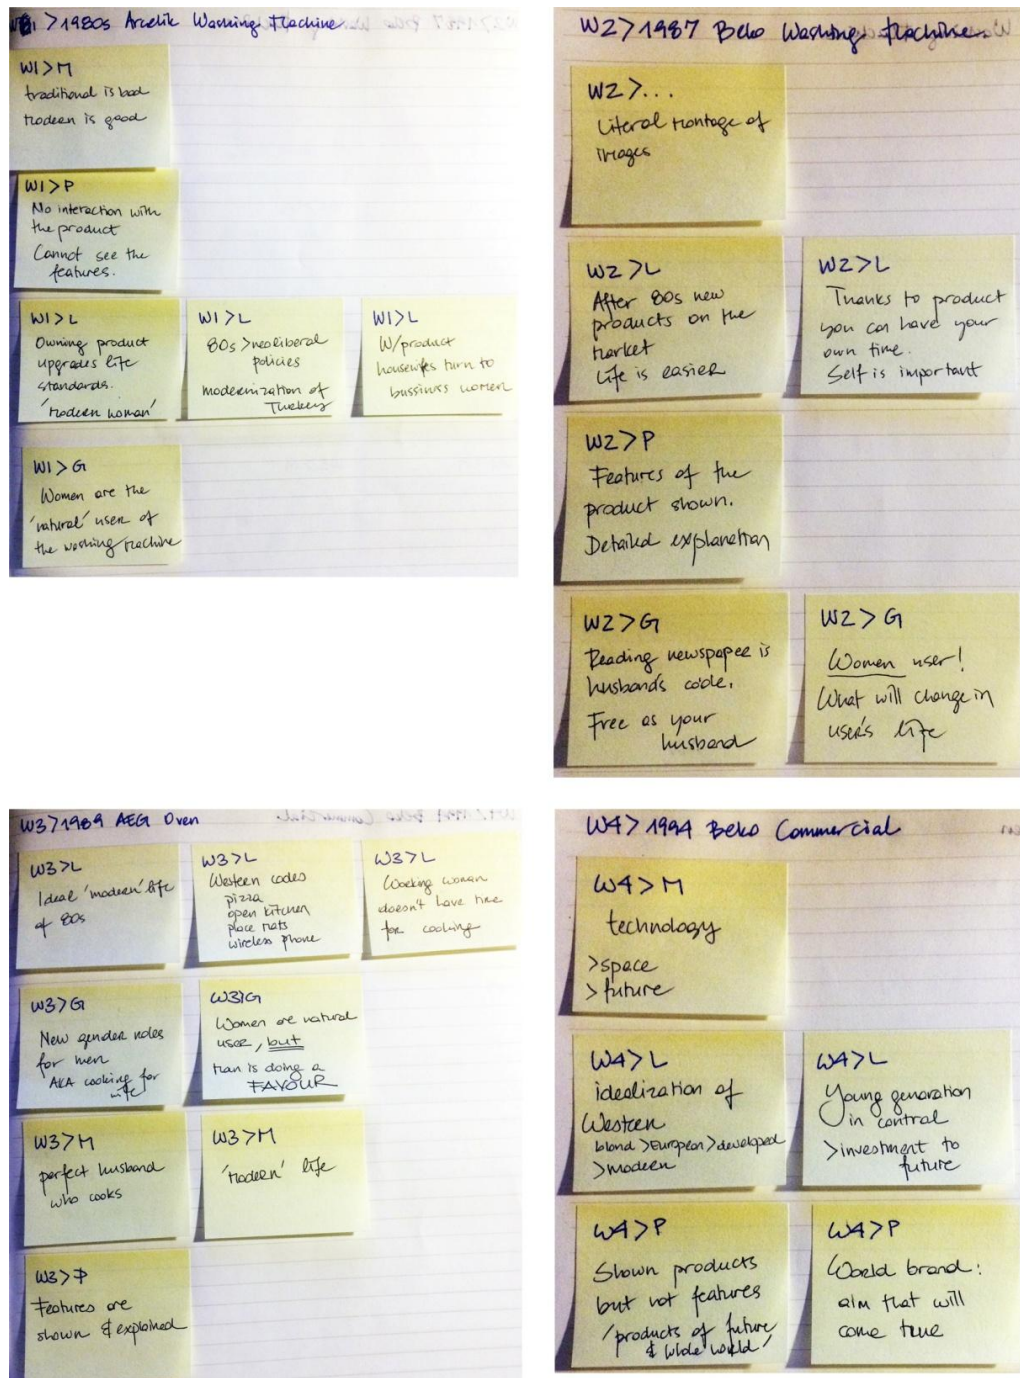 W1 > 1980s Arcelik Washing Machine
W1 > M
traditional is bad
modern is good
W1 > P
No interaction with
the product
Cannot see the
features.
W1 > L
Owning product
upgrades life
standards.
'modern woman'
W1 > L
80s > neoliberal
policies
modernization of
Turkey
W1 > L
W/product
housewifes turn to
bussiness women
W1 > G
Women are the
'natural' user of
the washing machine
W2 > 1987 Beko Washing Machine
W2 > ...
Literal montage of
images
W2 > L
After 80s new
products on the
market
Life is easier
W2 > L
Thanks to product
you can have your
own time.
Self is important
W2 > P
Features of the
product shown.
Detailed explanation
W2 > G
Reading newspaper is
husbands code.
Free as your
husband
W2 > G
Women user!
What will change in
user's life
W3 > 1989 AEG Oven
W3 > L
Ideal 'modern' life
of 80s
W3 > L
Western codes
pizza
open kitchen
place mats
wireless phone
W3 > L
Working woman
doesn't have time
for cooking
W3 > G
New gender roles
for men
AKA cooking for
wife
W3 > G
Women are natural
user, but
man is doing a
FAVOUR
W3 > M
perfect husband
who cooks
W3 > M
'modern' life
W3 > P
Features are
shown & explained
W4 > 1994 Beko Commercial
W4 > M
technology
> space
> future
W4 > L
idealization of
Western
blond > European > developed
> modern
W4 > L
Young generation
in control
> investment to
future
W4 > P
Shown products
but not features
'products of future
& wide world'
W4 > P
World brand:
aim that will
come true